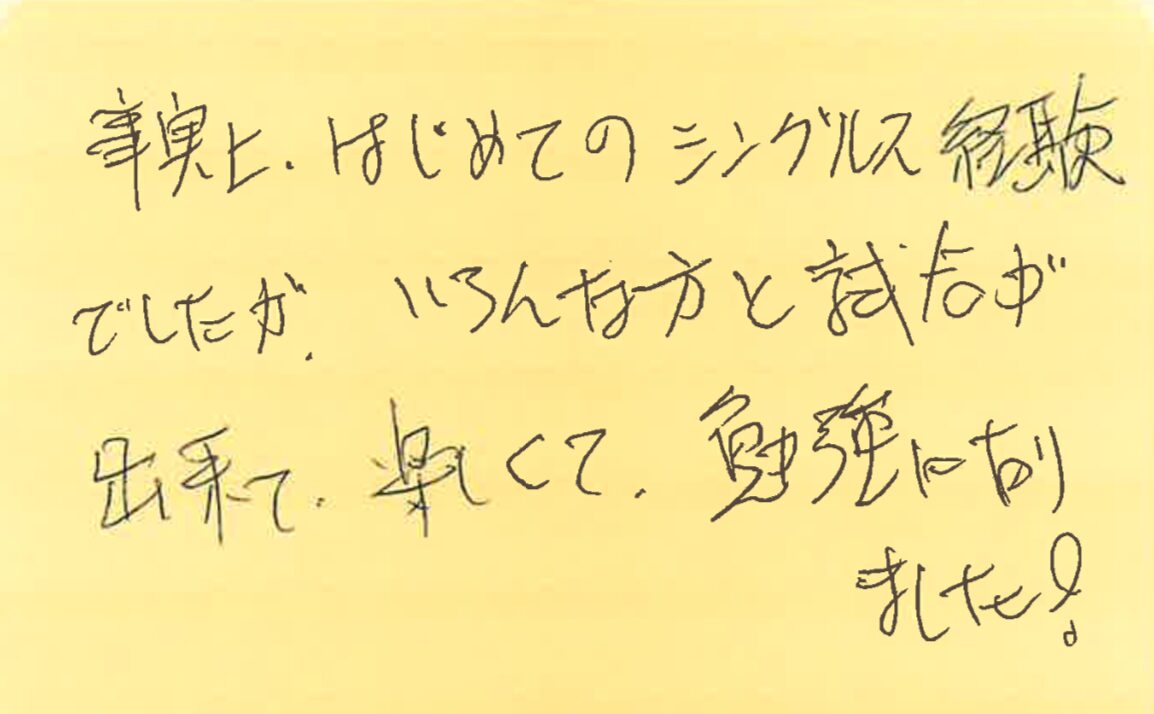 事実上、はじめてのシングルス経験
でしたが、いろんな方と試合が
出来て、楽しくて、勉強になり
ました!